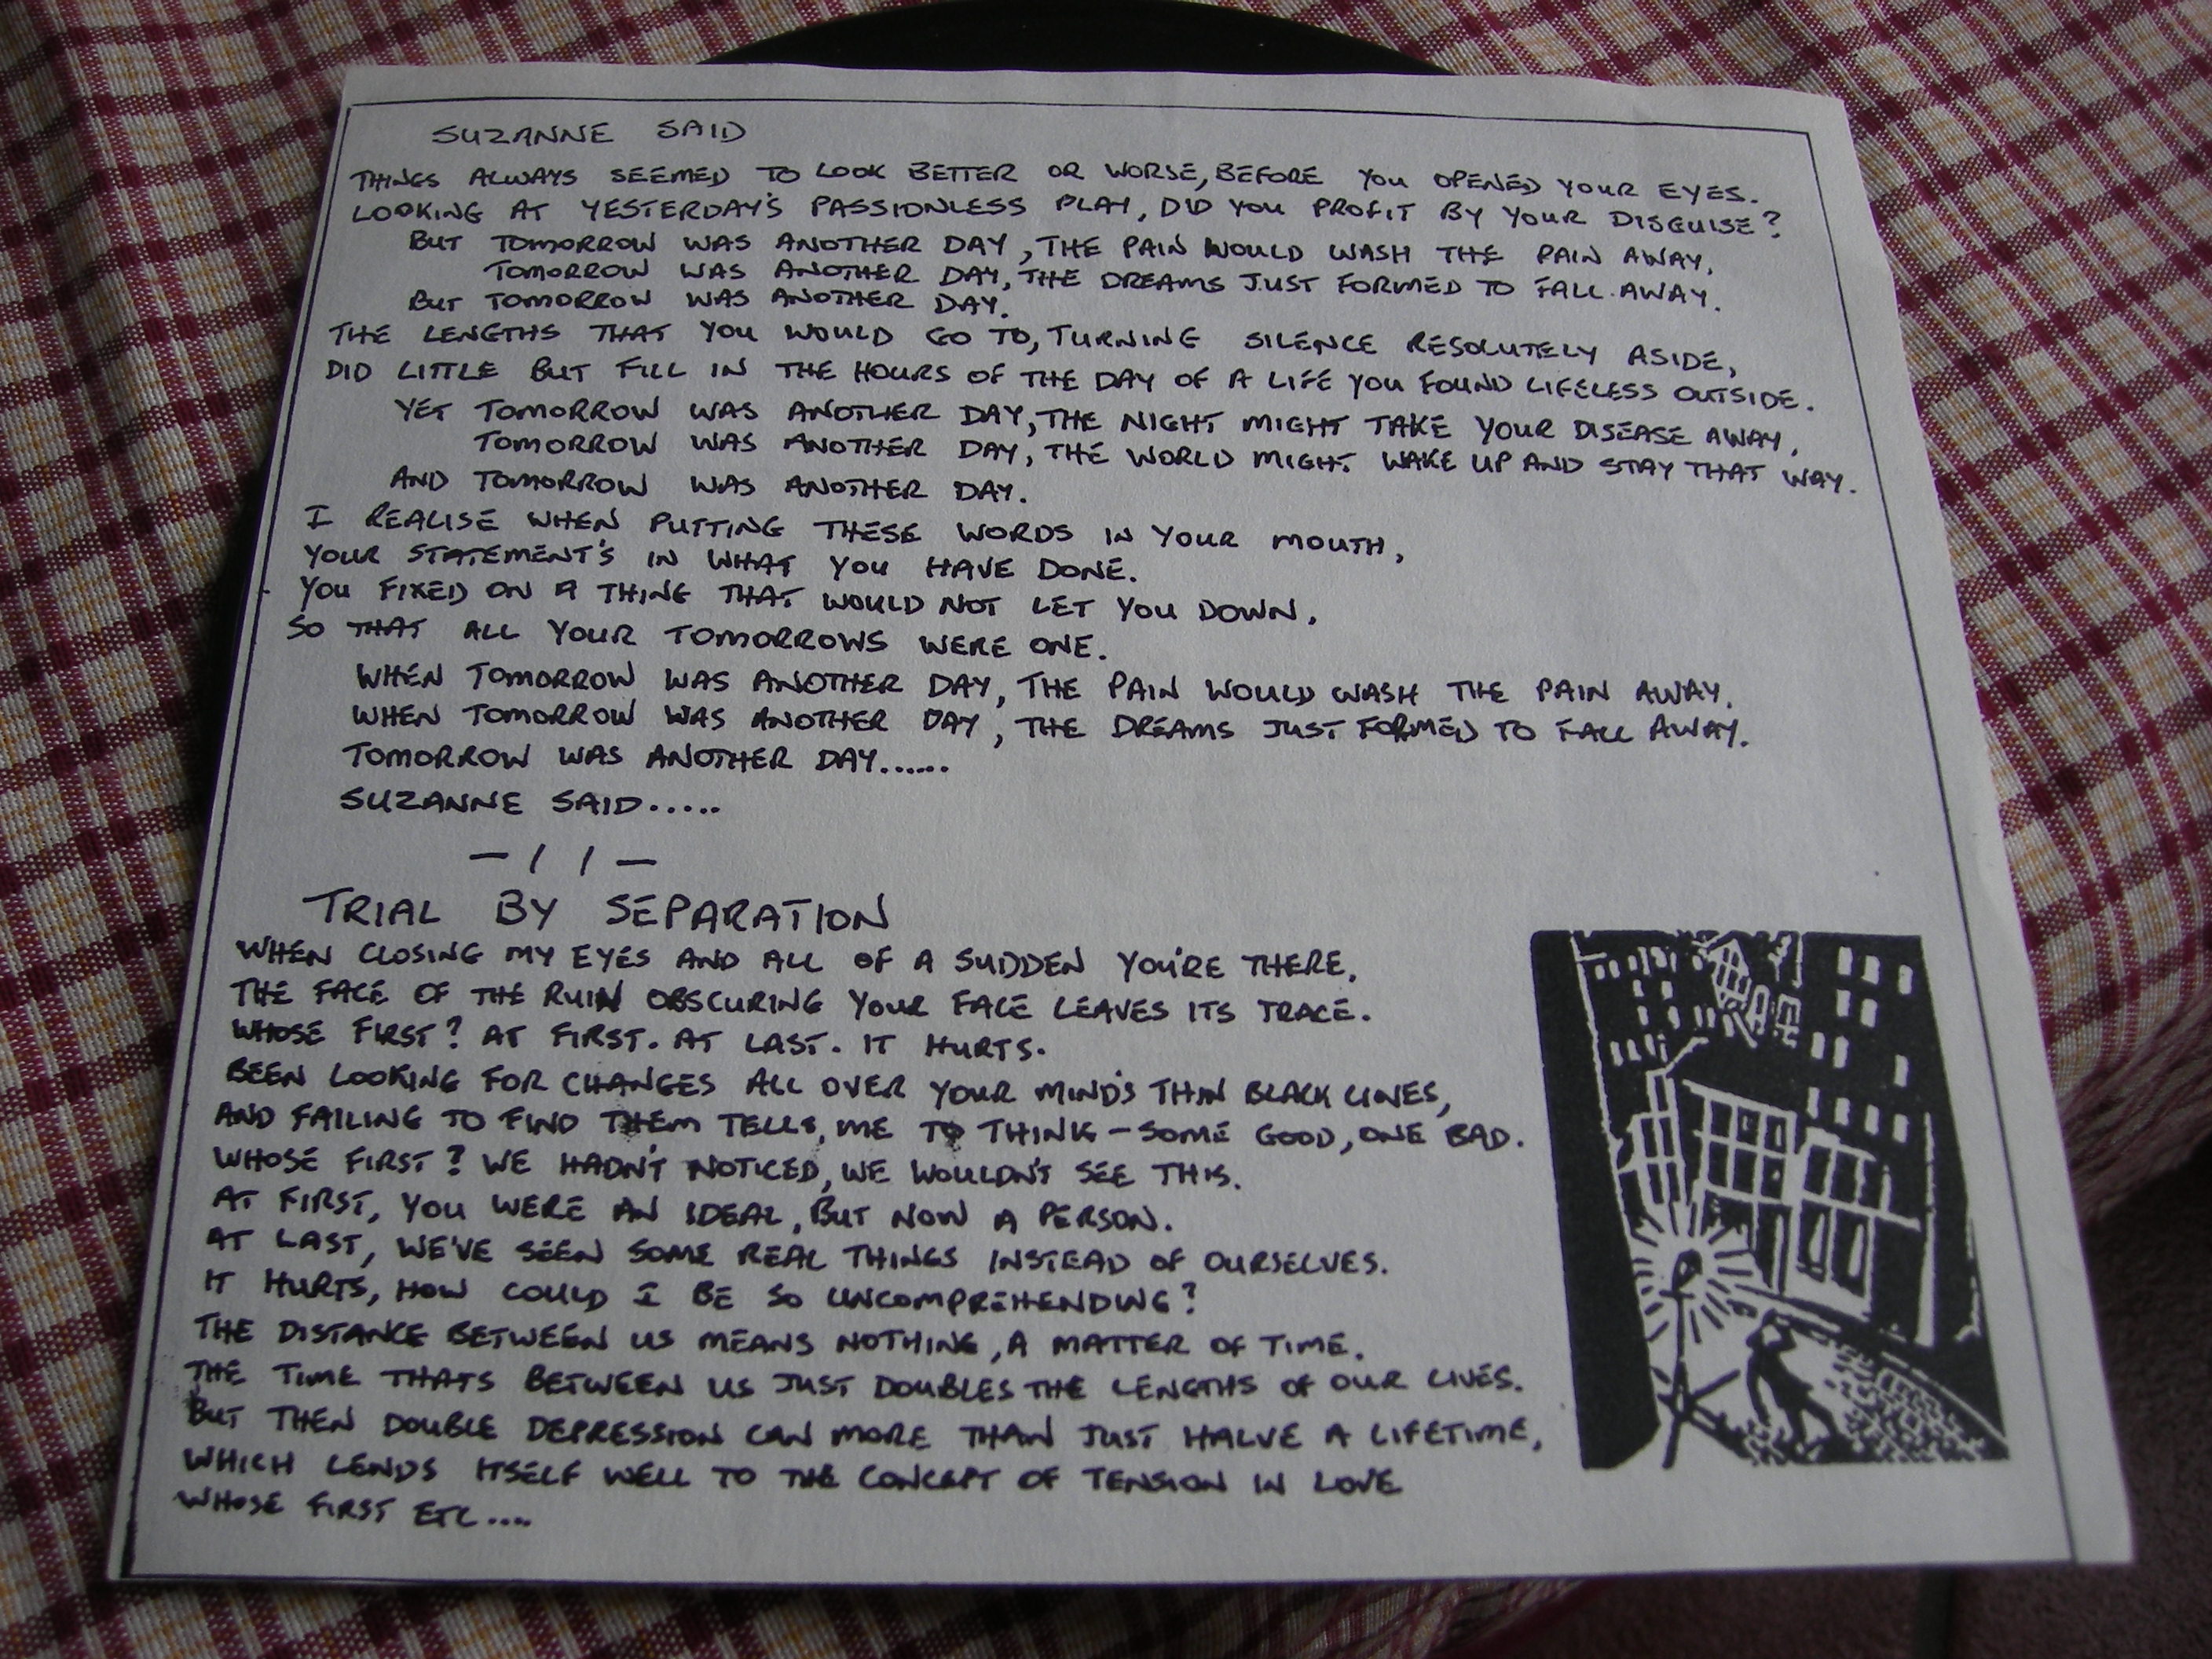 SUZANNE SAID
THINGS ALWAYS SEEMED TO LOOK BETTER OR WORSE, BEFORE YOU OPENED YOUR EYES.
LOOKING AT YESTERDAY'S PASSIONLESS PLAY, DID YOU PROFIT BY YOUR DISGUISE?
BUT TOMORROW WAS ANOTHER DAY, THE PAIN WOULD WASH THE PAIN AWAY,
TOMORROW WAS ANOTHER DAY, THE DREAMS JUST FORMED TO FALL AWAY.
BUT TOMORROW WAS ANOTHER DAY.
THE LENGTHS THAT YOU WOULD GO TO, TURNING SILENCE RESOLUTELY ASIDE,
DID LITTLE BUT FILL IN THE HOURS OF THE DAY OF A LIFE YOU FOUND LIFELESS OUTSIDE.
YET TOMORROW WAS ANOTHER DAY, THE NIGHT MIGHT TAKE YOUR DISEASE AWAY,
TOMORROW WAS ANOTHER DAY, THE WORLD MIGHT WAKE UP AND STAY THAT WAY.
AND TOMORROW WAS ANOTHER DAY.
I REALISE WHEN PUTTING THESE WORDS IN YOUR MOUTH,
YOUR STATEMENT'S IN WHAT YOU HAVE DONE.
YOU FIXED ON A THING THAT WOULD NOT LET YOU DOWN,
SO THAT ALL YOUR TOMORROWS WERE ONE.
WHEN TOMORROW WAS ANOTHER DAY, THE PAIN WOULD WASH THE PAIN AWAY.
WHEN TOMORROW WAS ANOTHER DAY, THE DREAMS JUST FORMED TO FALL AWAY.
TOMORROW WAS ANOTHER DAY......
SUZANNE SAID.....
— / / —
TRIAL BY SEPARATION
WHEN CLOSING MY EYES AND ALL OF A SUDDEN YOU'RE THERE,
THE FACE OF THE RUIN OBSCURING YOUR FACE LEAVES ITS TRACE.
WHOSE FIRST? AT FIRST. AT LAST. IT HURTS.
BEEN LOOKING FOR CHANGES ALL OVER YOUR MIND'S THIN BLACK LINES,
AND FAILING TO FIND THEM TELLS, ME TO THINK - SOME GOOD, ONE BAD.
WHOSE FIRST? WE HADN'T NOTICED, WE WOULDN'T SEE THIS.
AT FIRST, YOU WERE AN IDEAL, BUT NOW A PERSON.
AT LAST, WE'VE SEEN SOME REAL THINGS INSTEAD OF OURSELVES.
IT HURTS, HOW COULD I BE SO UNCOMPREHENDING?
THE DISTANCE BETWEEN US MEANS NOTHING, A MATTER OF TIME.
THE TIME THATS BETWEEN US JUST DOUBLES THE LENGTHS OF OUR LIVES.
BUT THEN DOUBLE DEPRESSION CAN MORE THAN JUST HALVE A LIFETIME,
WHICH LENDS ITSELF WELL TO THE CONCEPT OF TENSION IN LOVE
WHOSE FIRST ETC....